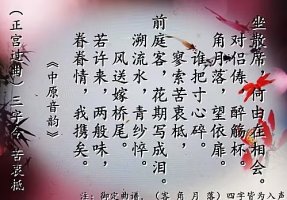 坐散席，何由在相会。
对侣俦，醉觞杯
角月落，望依扉。
谁把寸心碎。
寥索苦衷柢，
前庭客，花期写成泪。
溯流水，青纱悴。
风送嫁桥尾。
若许来，两般味，
眷眷情，我携矣。
《中原音韵》
（正宫过曲）三字令 苦衷柢
注：御定曲谱，（客 角 月 落）四字皆为入声